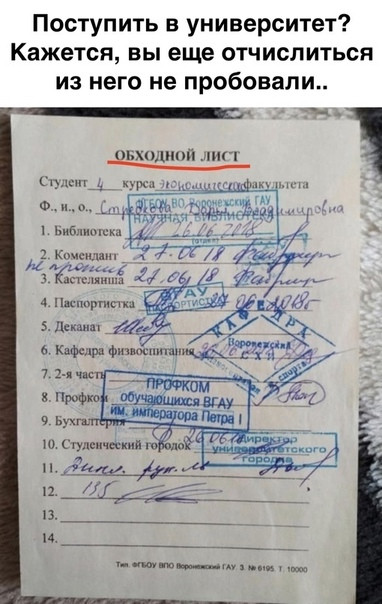 Поступить в университет?
Кажется, вы еще отчислиться
из него не пробовали..
ОБХОДНОЙ ЛИСТ
Студент 4 курса экономического факультета
Ф., и., о., Владимировна
ФГБОУ ВО Воронежский ГАУ
НАУЧНАЯ БИБЛИОТЕКА
1. Библиотека 26.06.2018
2. Комендант 27.06.18
не против
3. Кастелянша 27.06.18
4. Паспортистка
5. Деканат
КАФЕДРА
6. Кафедра физвоспитания
7. 2-я часть
ПРОФКОМ
обучающихся ВГАУ
им. императора Петра I
8. Профком
9. Бухгалтерия
10. Студенческий городок
Директор
университетского
городка
11.
12. 135
13.
14.
Тип. ФГБОУ ВПО Воронежский ГАУ З. № 6195. Т. 10000